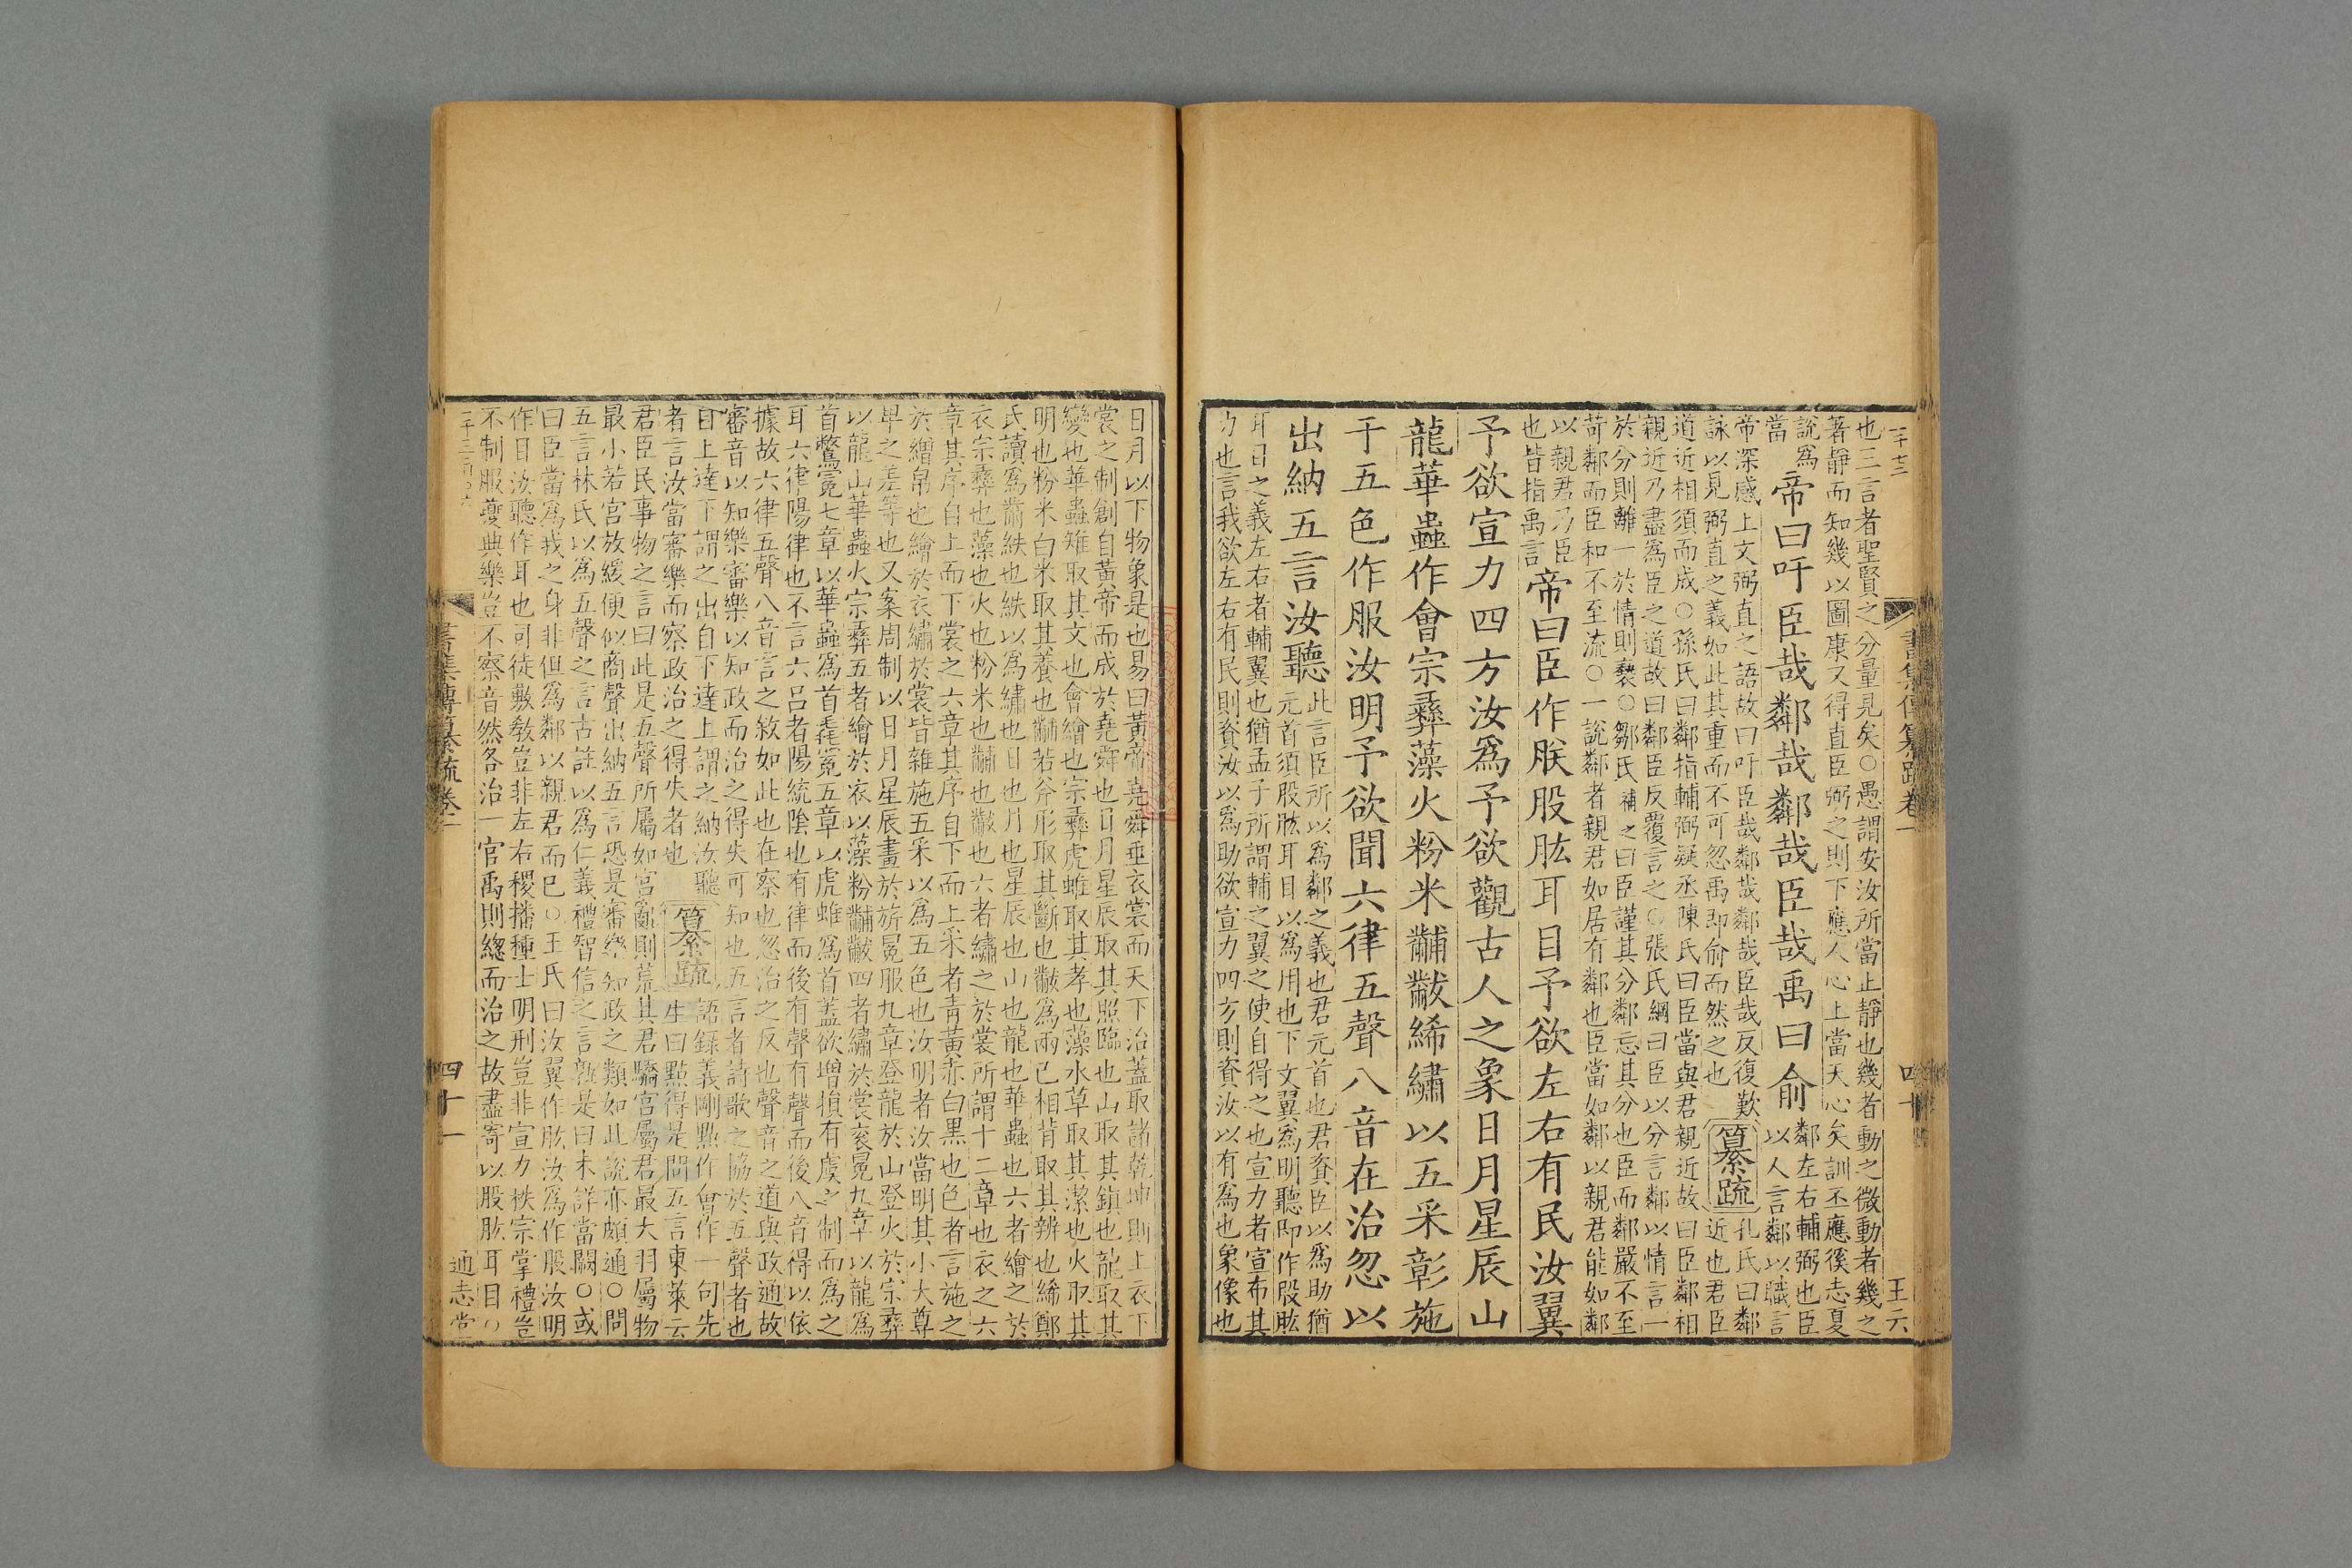 二千七十二
書集傳纂疏卷一
四十
王六
也三言者聖賢之分量見矣○愚謂安汝所當止靜也幾者動之微動者幾之
著靜而知幾以圖康又得直臣弼之則下應人心上當天心矣訓丕應徯志夏
說爲
當
帝曰吁臣哉鄰哉鄰哉臣哉禹曰俞
鄰左右輔弼也臣
以人言鄰以職言
帝深感上文弼直之語故曰吁臣哉鄰哉鄰哉臣哉反復歎
詠以見弼直之義如此其重而不可忽禹卽俞而然之也
纂疏
孔氏曰鄰
近也君臣
道近相須而成○孫氏曰鄰指輔弼疑丞陳氏曰臣當與君親近故曰臣鄰相
親近乃盡爲臣之道故曰鄰臣反覆言之○張氏綱曰臣以分言鄰以情言一
於分則離一於情則褻○鄒氏補之曰臣謹其分鄰忘其分也臣而鄰嚴不至
苛鄰而臣和不至流○一說鄰者親君如居有鄰也臣當如鄰以親君能如鄰
以親君乃臣
也皆指禹言
帝曰臣作朕股肱耳目予欲左右有民汝翼
予欲宣力四方汝爲予欲觀古人之象日月星辰山
龍華蟲作會宗彝藻火粉米黼黻絺繡以五采彰施
于五色作服汝明予欲聞六律五聲八音在治忽以
出納五言汝聽
此言臣所以爲鄰之義也君元首也君資臣以爲助猶
元首須股肱耳目以爲用也下文翼爲明聽卽作股肱
耳目之義左右者輔翼也猶孟子所謂輔之翼之使自得之也宣力者宣布其
力也言我欲左右有民則資汝以爲助欲宣力四方則資汝以有爲也象像也
日月以下物象是也易曰黃帝堯舜垂衣裳而天下治蓋取諸乾坤則上衣下
裳之制創自黃帝而成於堯舜也日月星辰取其照臨也山取其鎮也龍取其
變也華蟲雉取其文也會繪也宗彝虎蜼取其孝也藻水草取其潔也火取其
明也粉米白米取其養也黼若斧形取其斷也黻爲兩己相背取其辨也絺鄭
氏讀爲黹紩也紩以爲繡也日也月也星辰也山也龍也華蟲也六者繪之於
衣宗彝也藻也火也粉米也黼也黻也六者繡之於裳所謂十二章也衣之六
章其序自上而下裳之六章其序自下而上采者青黃赤白黑也色者言施之
於繒帛也繪於衣繡於裳皆雜施五采以爲五色也汝明者汝當明其小大尊
卑之差等也又案周制以日月星辰畫於旂冕服九章登龍於山登火於宗彝
以龍山華蟲火宗彝五者繪於衣以藻粉黼黻四者繡於裳袞冕九章以龍爲
首鷩冕七章以華蟲爲首毳冕五章以虎蜼爲首蓋欲增損有虞之制而爲之
耳六律陽律也不言六呂者陽統陰也有律而後有聲有聲而後八音得以依
據故六律五聲八音言之敘如此也在察也忽治之反也聲音之道與政通故
審音以知樂審樂以知政而治之得失可知也五言者詩歌之協於五聲者也
自上達下謂之出自下達上謂之納汝聽
者言汝當審樂而察政治之得失者也
纂疏
語錄義剛點作會作一句先
生曰點得是問五言東萊云
君臣民事物之言曰此是五聲所屬如宮亂則荒其君驕宮屬君最大羽屬物
最小若宮放緩便似商聲出納五言恐是審樂知政之類如此說亦頗通○問
五言林氏以爲五聲之言古註以爲仁義禮智信之言孰是曰未詳當闕○或
曰臣當爲我之身非但爲鄰以親君而已○王氏曰汝翼作肱汝爲作股汝明
作目汝聽作耳也司徒敷敎豈非左右稷播種士明刑豈非宣力秩宗掌禮豈
不制服夔典樂豈不察音然各治一官禹則總而治之故盡寄以股肱耳目○
書集傳纂疏卷一
四十一
通志堂